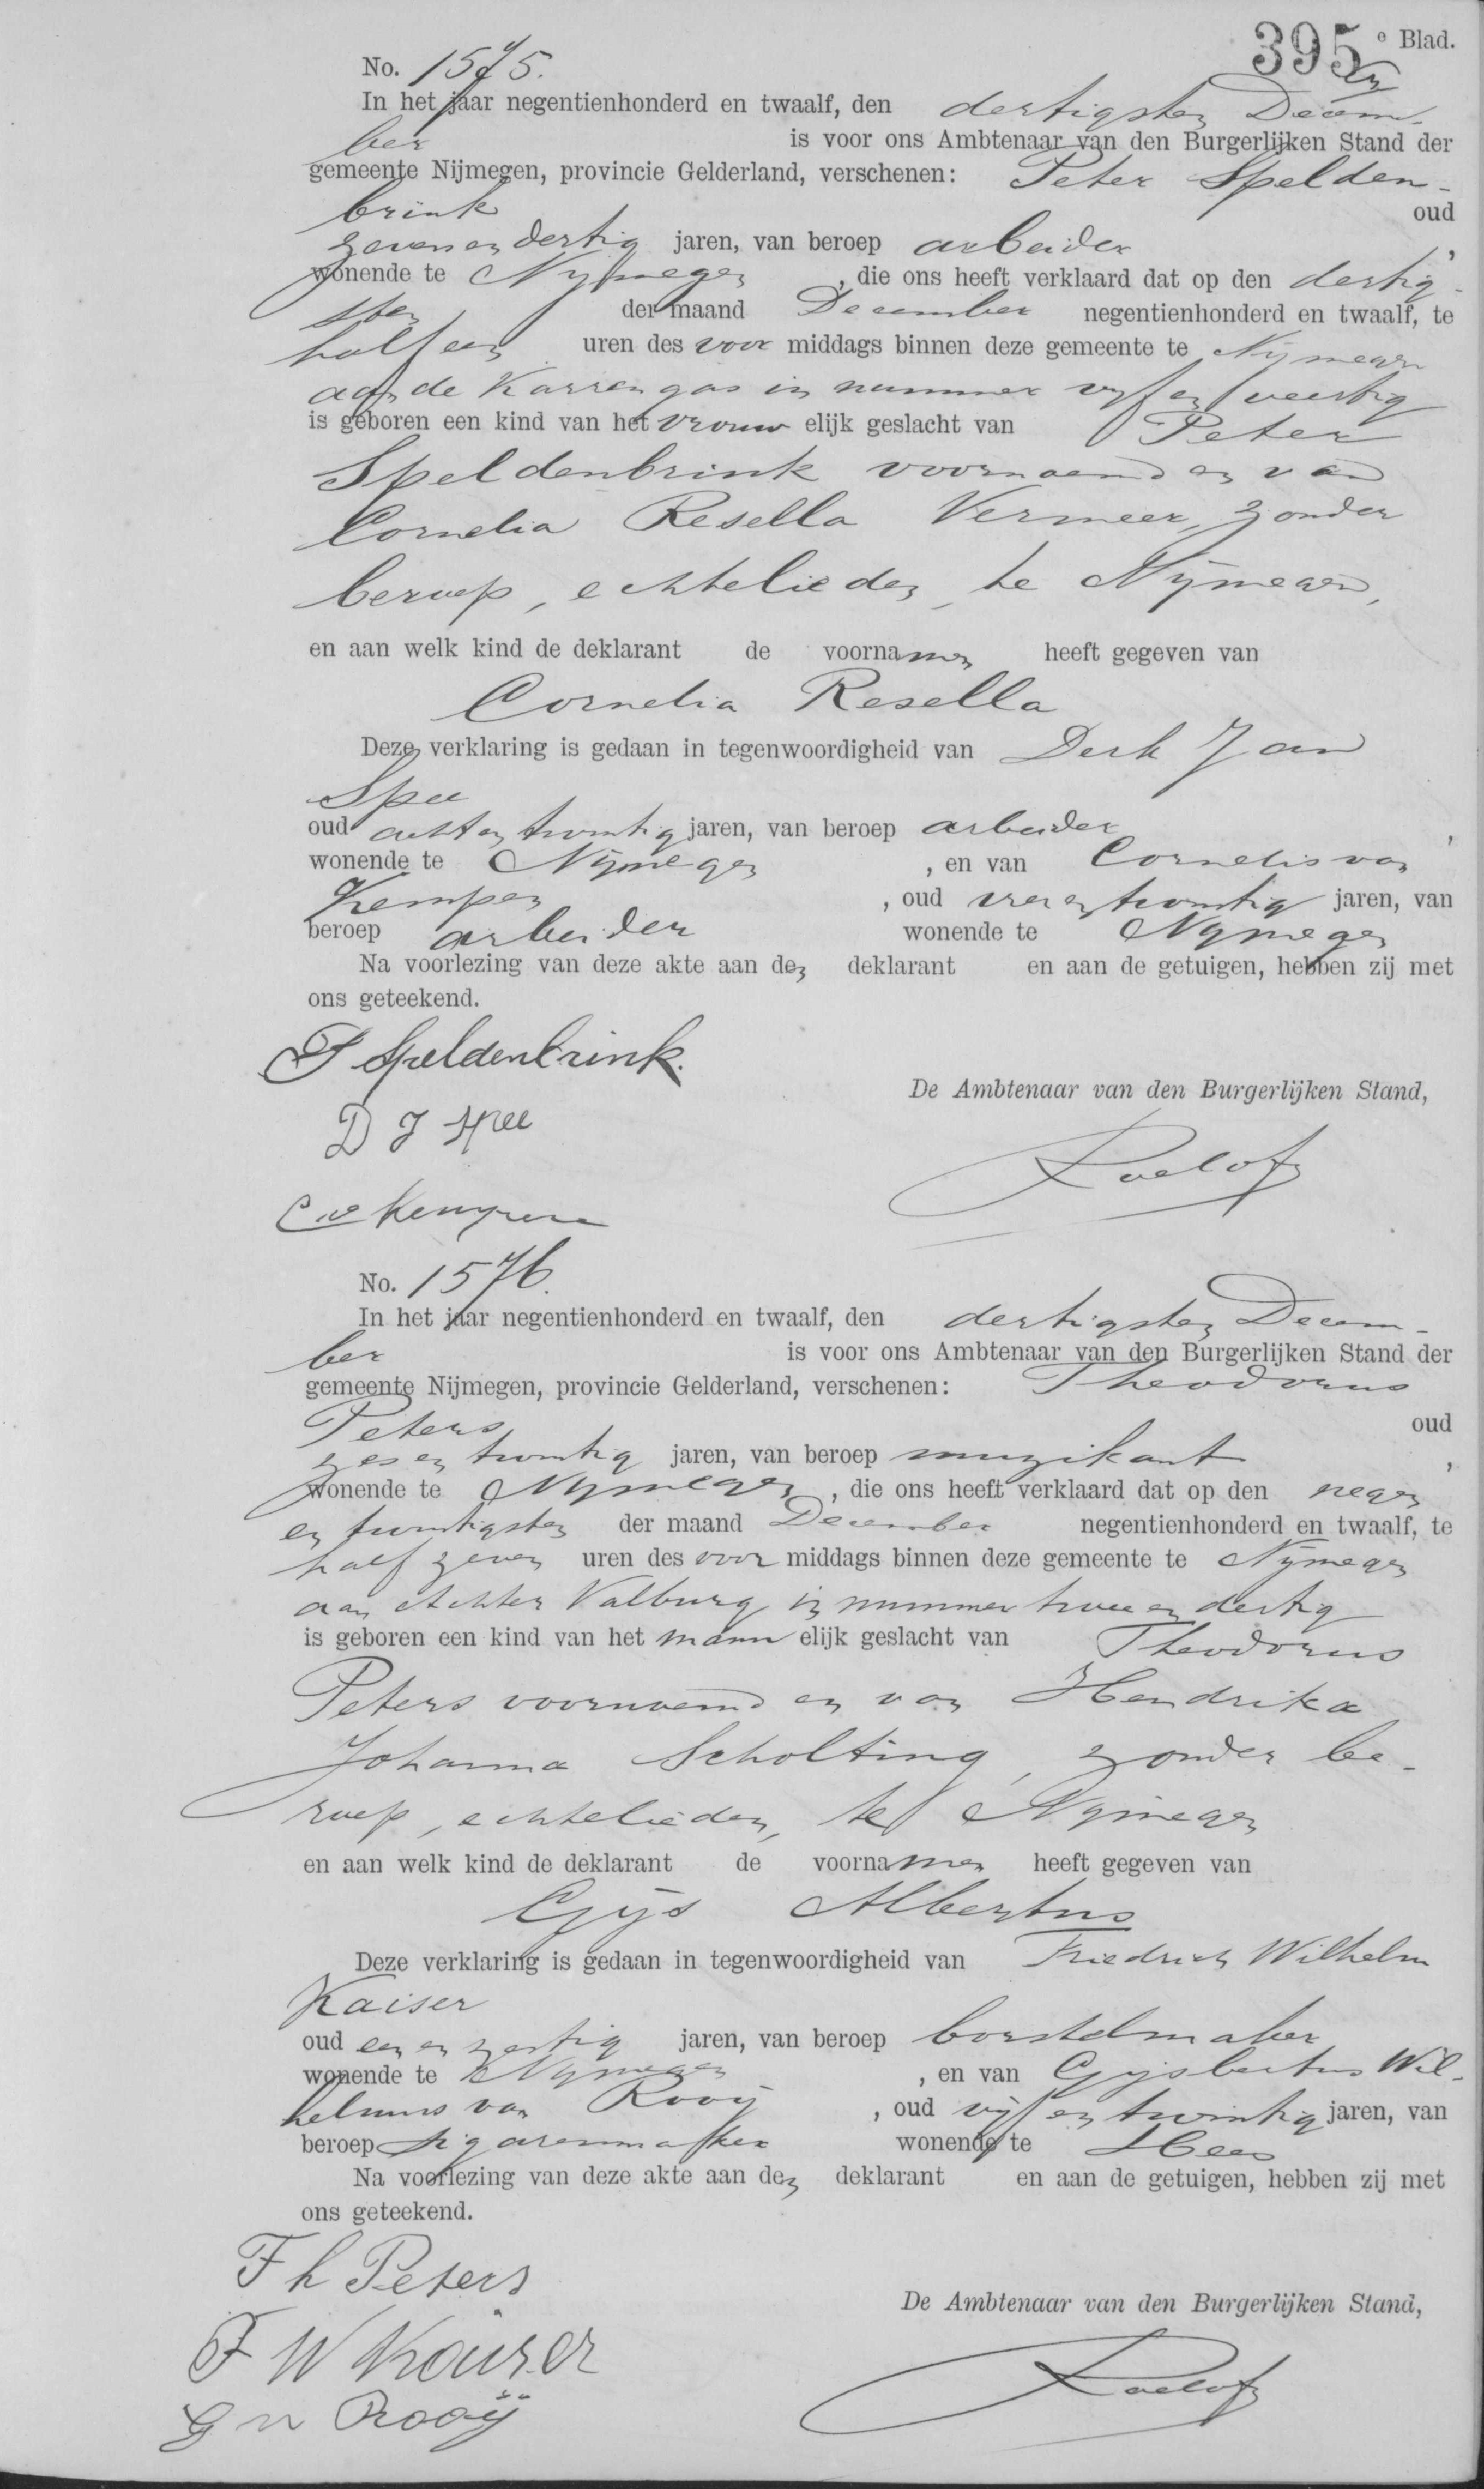 395e Blad.
No. 1575.
In het jaar negentienhonderd en twaalf, den dertigsten Decem-
ber is voor ons Ambtenaar van den Burgerlijken Stand der
gemeente Nijmegen, provincie Gelderland, verschenen: Peter Spelden-
brink oud
zevenendertig jaren, van beroep arbeider,
wonende te Nijmegen, die ons heeft verklaard dat op den dertig-
sten der maand December negentienhonderd en twaalf, te
half een uren des voor middags binnen deze gemeente te Nijmegen
aan de Karrengas in nummer vijf en veertig
is geboren een kind van het vrouwelijk geslacht van Peter
Speldenbrink voornoemd en van
Cornelia Resella Vermeer, zonder
beroep, echtelieden, te Nijmegen,
en aan welk kind de deklarant de voornamen heeft gegeven van
Cornelia Resella
Deze verklaring is gedaan in tegenwoordigheid van Derk Jan
Spee
oud achtentwintig jaren, van beroep arbeider,
wonende te Nijmegen, en van Cornelis van
Kempen, oud vierentwintig jaren, van
beroep arbeider wonende te Nijmegen
Na voorlezing van deze akte aan den deklarant en aan de getuigen, hebben zij met
ons geteekend.
P Speldenbrink.
De Ambtenaar van den Burgerlijken Stand,
D J Spee
Roelofs
C v Kempen
No. 1576.
In het jaar negentienhonderd en twaalf, den dertigsten Decem-
ber is voor ons Ambtenaar van den Burgerlijken Stand der
gemeente Nijmegen, provincie Gelderland, verschenen: Theodorus
Peters oud
zesentwintig jaren, van beroep muzikant,
wonende te Nijmegen, die ons heeft verklaard dat op den negen
en twintigsten der maand December negentienhonderd en twaalf, te
half zeven uren des voor middags binnen deze gemeente te Nijmegen
aan Achter Valburg in nummer twee en dertig
is geboren een kind van het mannelijk geslacht van Theodorus
Peters voornoemd en van Hendrika
Johanna Scholting, zonder be-
roep, echtelieden, te Nijmegen
en aan welk kind de deklarant de voornamen heeft gegeven van
Gijs Albertus
Deze verklaring is gedaan in tegenwoordigheid van Friedrich Wilhelm
Kaiser
oud een en zestig jaren, van beroep borstelmaker
wonende te Nijmegen, en van Gijsbertus Wil-
helmus van Rooij, oud vijf en twintig jaren, van
beroep sigarenmaker wonende te Hees
Na voorlezing van deze akte aan den deklarant en aan de getuigen, hebben zij met
ons geteekend.
Th Peters
De Ambtenaar van den Burgerlijken Stand,
F W Kaiser
Roelofs
G v Rooij